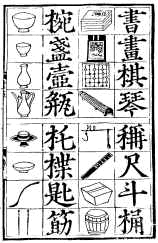 書畫棋琴
稱尺斗桶
椀盞壺瓶
托楪匙筯